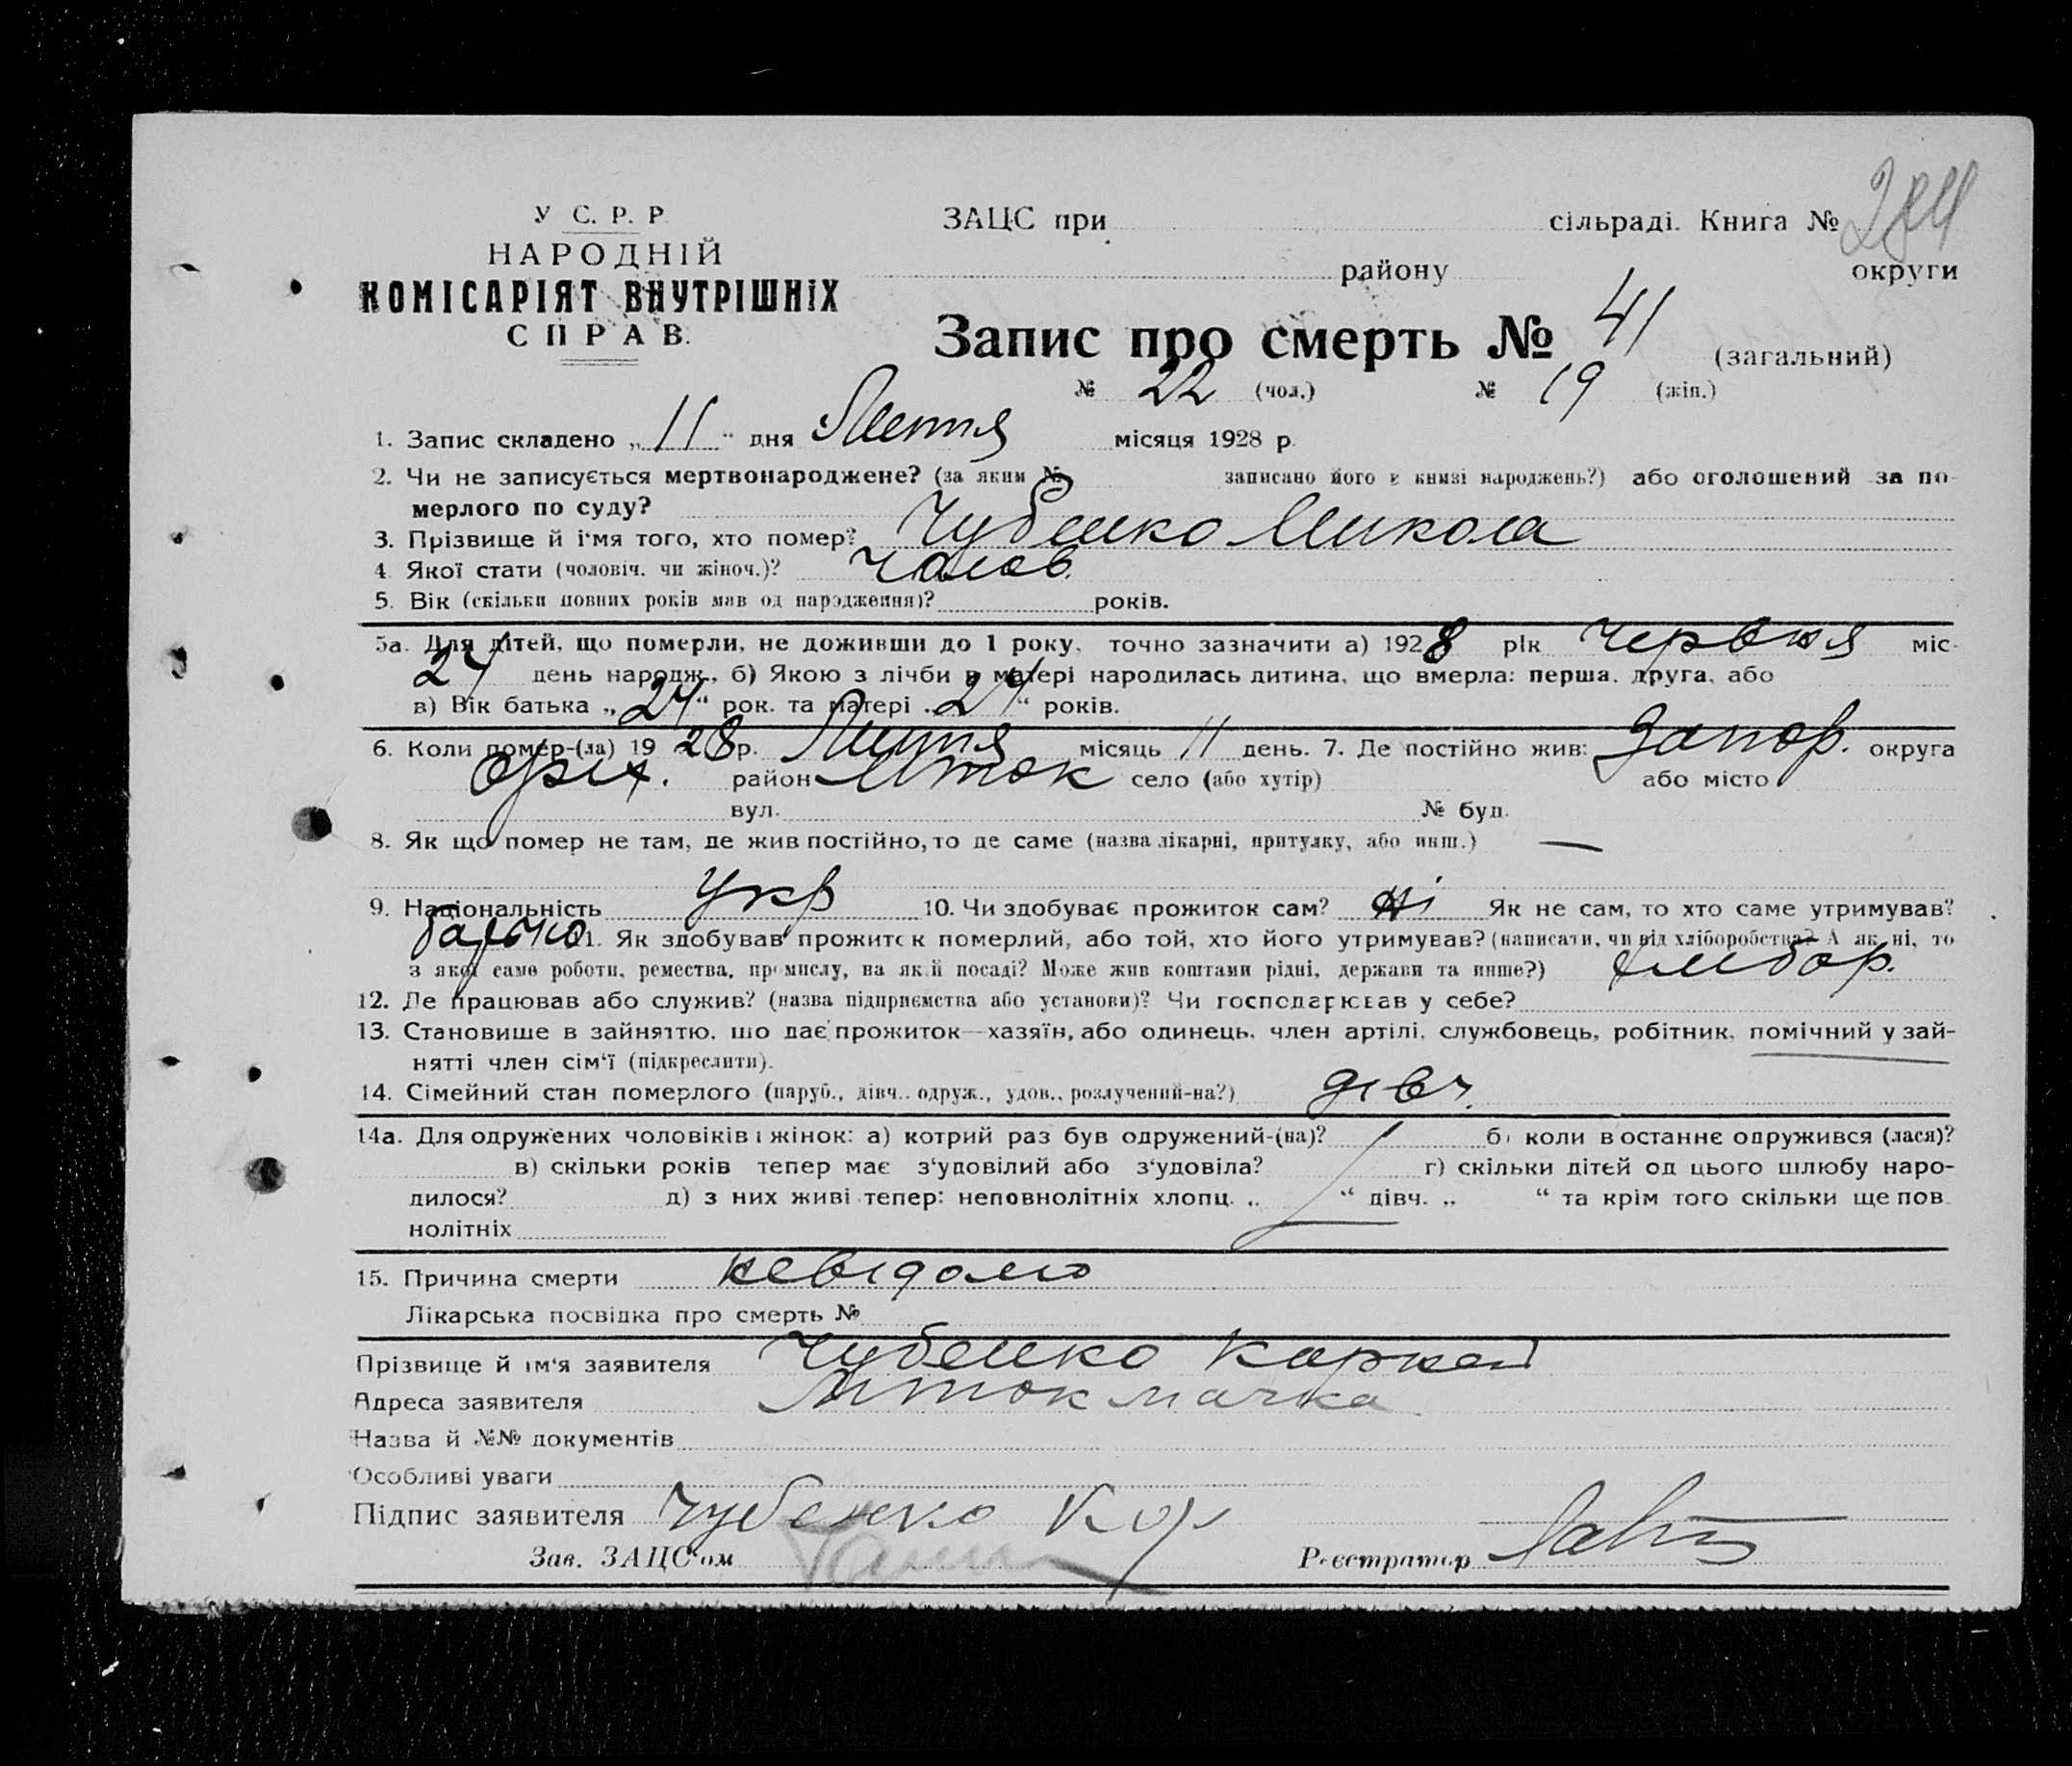 У С. Р. Р.
НАРОДНІЙ
КОМІСАРІЯТ ВНУТРІШНІХ
СПРАВ.
ЗАЦС при сільраді. Книга №
284
району округи
Запис про смерть № 41 (загальний)
№ 22 (чол.) № 19 (жін.)
1. Запис складено „11“ дня Липня місяця 1928 р.
2. Чи не записується мертвонароджене? (за яким № записано його в книзі народжень?) або оголошений за по-
мерлого по суду?
3. Прізвище й ім'я того, хто помер? Чубенко Микола
4. Якої стати (чоловіч. чи жіноч.)? Чолов.
5. Вік (скільки повних років мав од народження)? років.
5а. Для дітей, що померли, не доживши до 1 року, точно зазначити а) 1928 рік Червня міс.
24 день народж., б) Якою з лічби в матері народилась дитина, що вмерла: перша, друга, або
в) Вік батька „24“ рок. та матері „24“ років.
6. Коли помер-(ла) 1928 р. Липня місяць 11 день. 7. Де постійно жив: Запор. округа
Оріх. район Мток село (або хутір) або місто
вул. № буд.
8. Як що помер не там, де жив постійно, то де саме (назва лікарні, притулку, або инш.) —
9. Національність Укр 10. Чи здобуває прожиток сам? ні Як не сам, то хто саме утримував?
батько 11. Як здобував прожиток померлий, або той, хто його утримував? (написати, чи від хліборобства? А як ні, то
з якої саме роботи, ремества, промислу, на якій посаді? Може жив коштами рідні, держави та инше?) хлібор.
12. Де працював або служив? (назва підприємства або установи)? Чи господарював у себе?
13. Становище в зайняттю, що дає прожиток—хазяїн, або одинець, член артілі, службовець, робітник, помічний у зай-
нятті член сім'ї (підкреслити).
14. Сімейний стан померлого (паруб., дівч., одруж., удов., розлучений-на?) дівч.
14а. Для одружених чоловіків і жінок: а) котрий раз був одружений-(на)? б) коли в останнє одружився (лася)?
в) скільки років тепер має з'удовілий або з'удовіла? г) скільки дітей од цього шлюбу наро-
дилося? д) з них живі тепер: неповнолітніх хлопц. „ “ дівч. „ “ та крім того скільки ще пов-
нолітніх
15. Причина смерти невідомо
Лікарська посвідка про смерть №
Прізвище й ім'я заявителя Чубенко Корней
Адреса заявителя Мток мачка
Назва й №№ документів
Особливі уваги
Підпис заявителя Чубенко Кор
Зав. ЗАЦС'ом Реєстратор